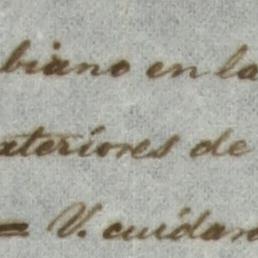 biano en la
xteriores de
= V. cuidar